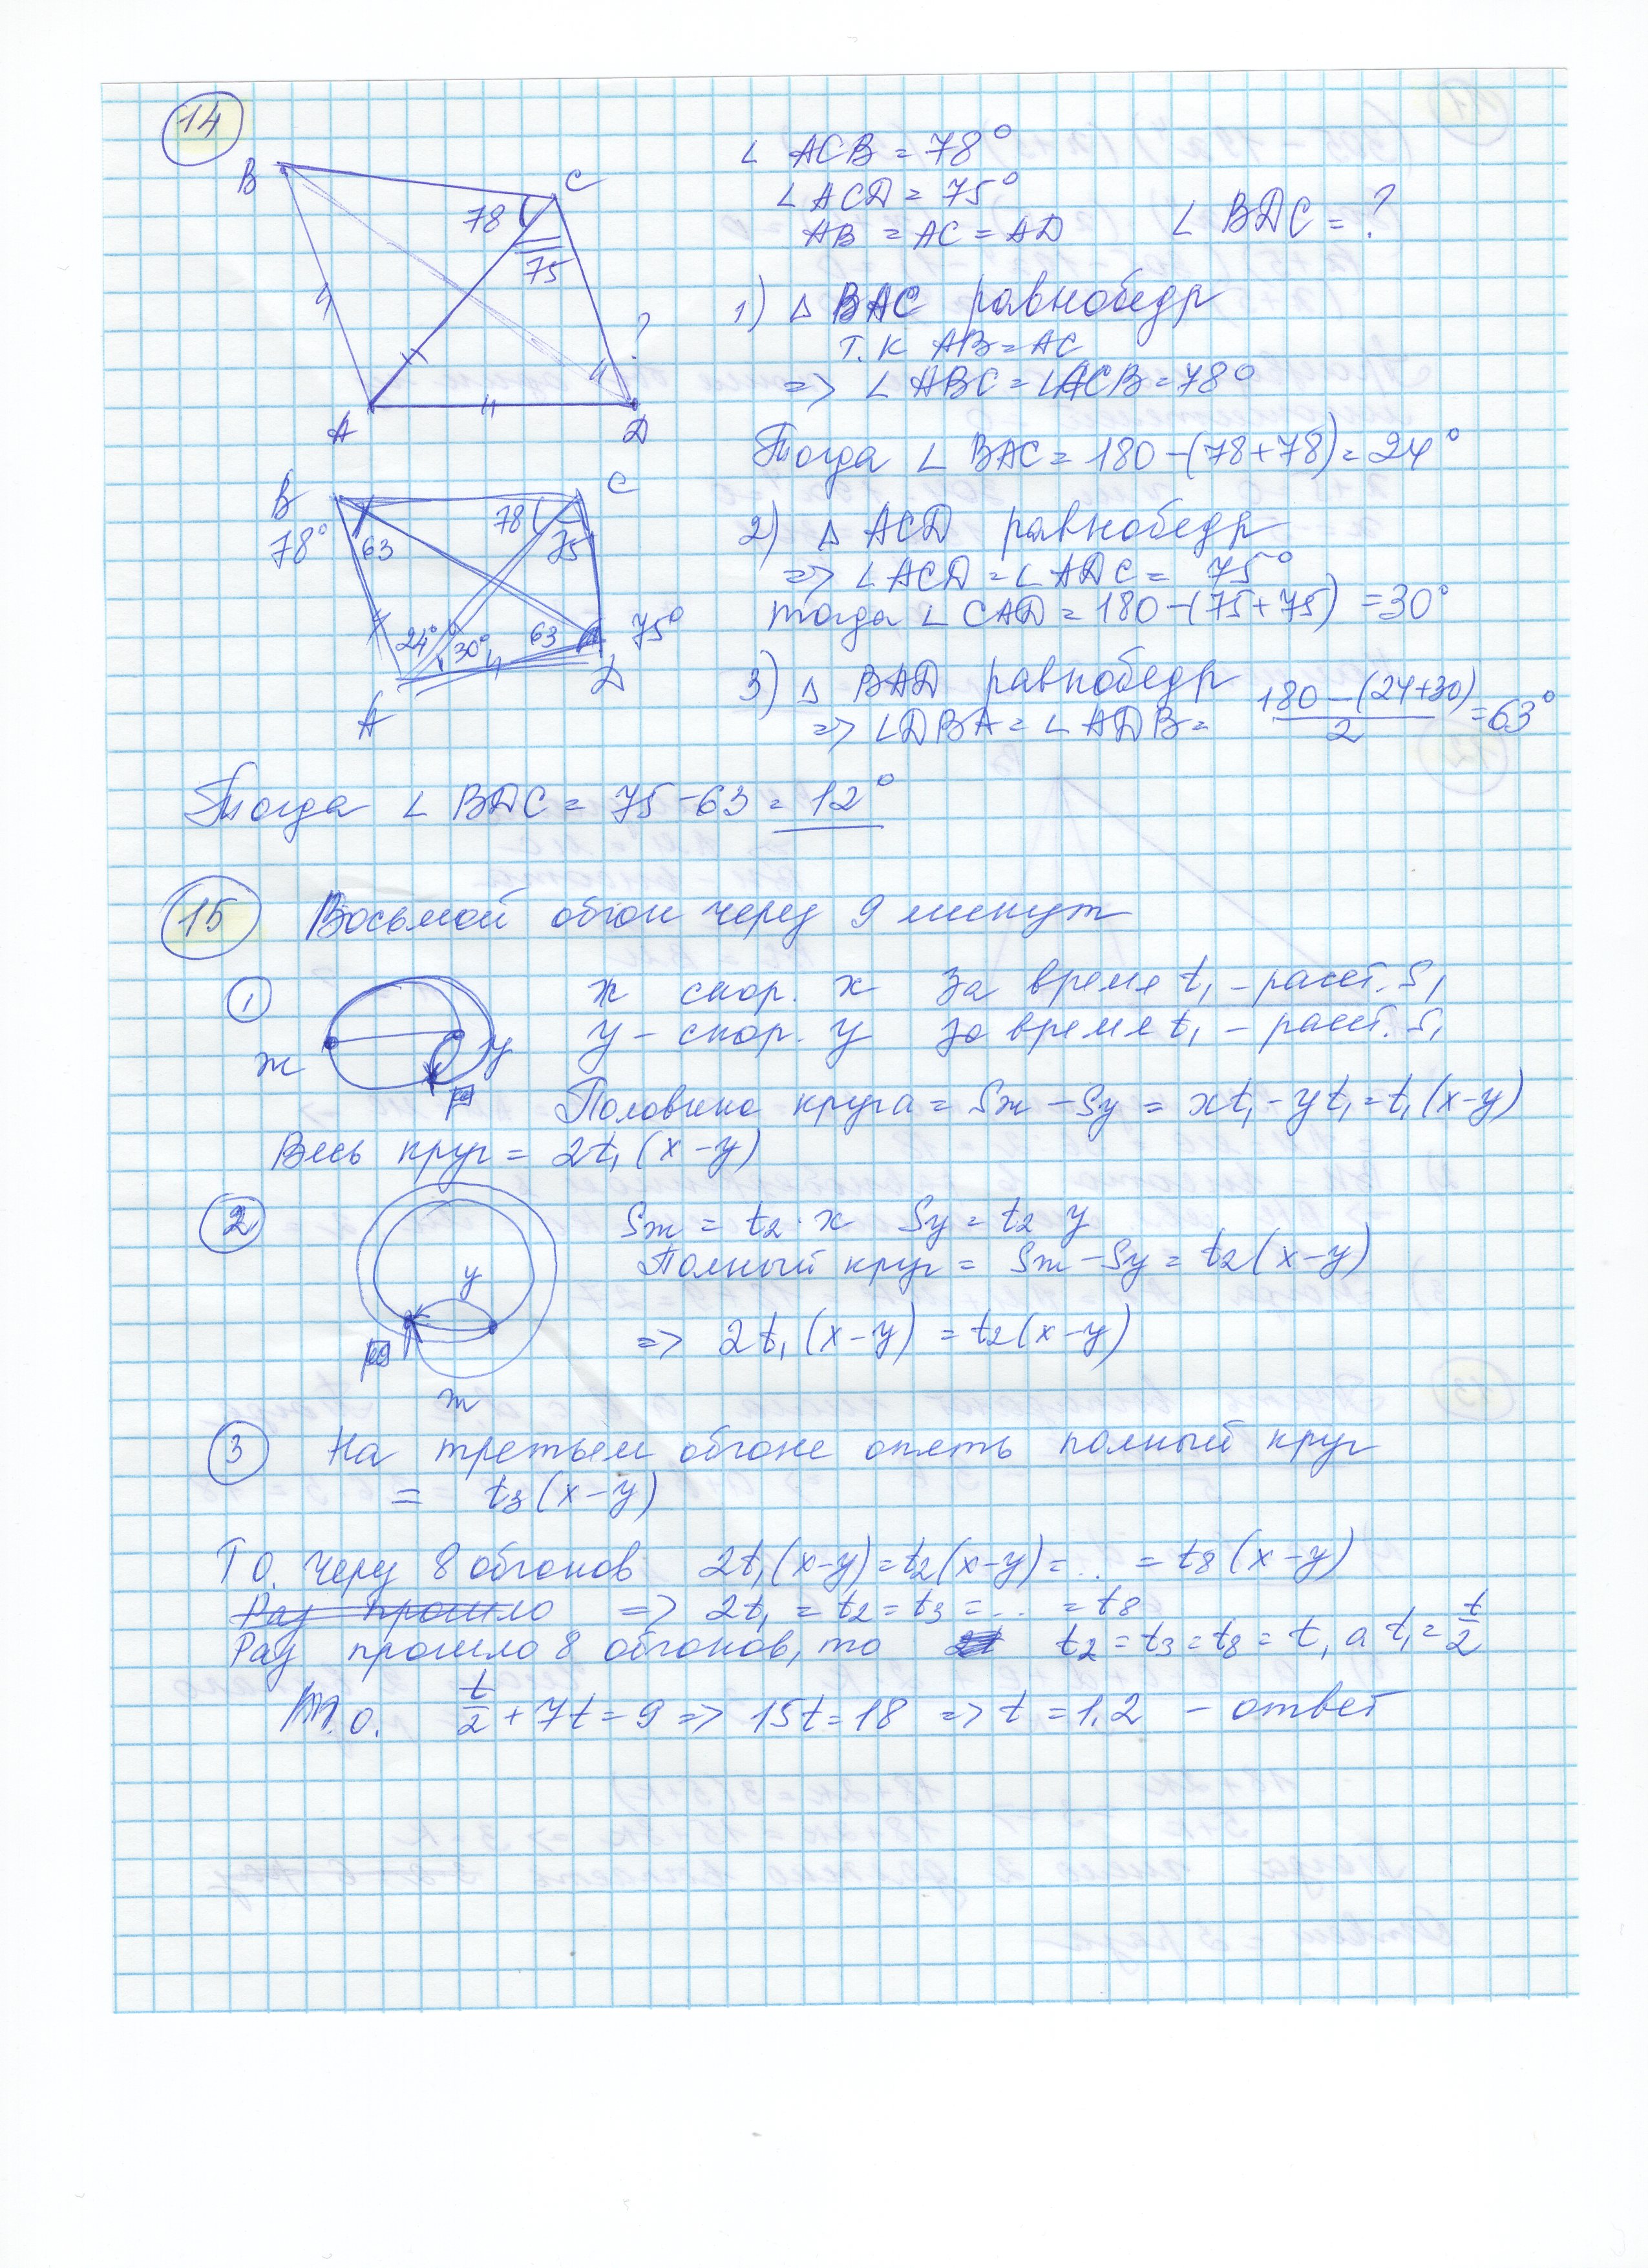 14
B
C
78
75
4
?
A
D
∠ ACB = 78°
∠ ACD = 75°
AB = AC = AD ∠ BDC = ?
1) △ BAC равнобедр
т.к AB = AC
=> ∠ ABC = ∠ACB = 78°
Тогда ∠ BAC = 180 - (78+78) = 24°
B
C
78°
63
78
75
24°
30°
63
75°
A
D
2) △ ACD равнобедр
=> ∠ACD = ∠ADC = 75°
тогда ∠ CAD = 180 - (75+75) = 30°
3) △ BAD равнобедр
=> ∠DBA = ∠ ADB = (180 - (24+30))/2 = 63°
Тогда ∠ BDC = 75 - 63 = 12°
15 Восьмой обгон через 9 минут
1
ж
у
ж скор. x за время t₁ - расст. S₁
у - скор. y за время t₁ - расст. S₁
Половина круга = Sж - Sу = xt₁ - yt₁ = t₁(x-y)
Весь круг = 2t₁(x-y)
2
у
ж
Sж = t₂·x Sу = t₂ y
Полный круг = Sж - Sу = t₂(x-y)
=> 2t₁(x-y) = t₂(x-y)
3 На третьем обгоне опять полный круг
= t₃(x-y)
Т о. через 8 обгонов 2t₁(x-y) = t₂(x-y) = ... = t₈(x-y)
Раз прошло => 2t₁ = t₂ = t₃ = ... = t₈
Раз прошло 8 обгонов, то t₂ = t₃ = t₈ = t, а t₁ = t/2
Т.о. t/2 + 7t = 9 => 15t = 18 => t = 1.2 - ответ